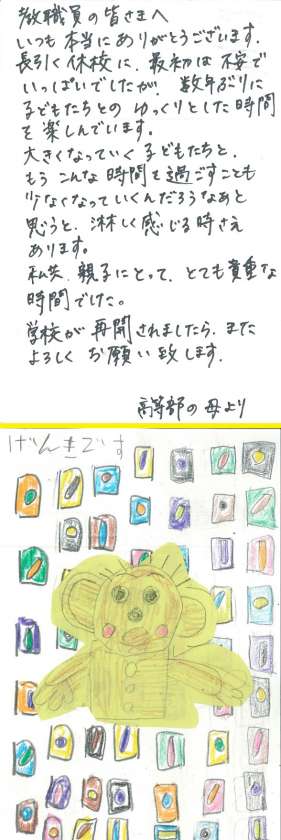 教職員の皆さまへ
いつも本当にありがとうございます。
長引く休校に、最初は不安で
いっぱいでしたが、数年ぶりに
子どもたちとのゆっくりとした時間
を楽しんでいます。
大きくなっていく子どもたちと、
もうこんな時間を過ごすことも
少なくなっていくんだろうなあと
思うと、淋しく感じる時さえ
あります。
私共、親子にとって、とても貴重な
時間でした。
学校が再開されましたら、また
よろしくお願い致します。
高等部の母より
げんきです